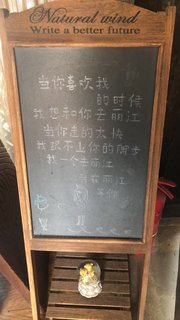 Natural wind
Write a better future
当你喜欢我
的时候
我想和你去丽江
当你走的太快
我跟不上你的脚步
我一个去丽江
我在丽江
等你